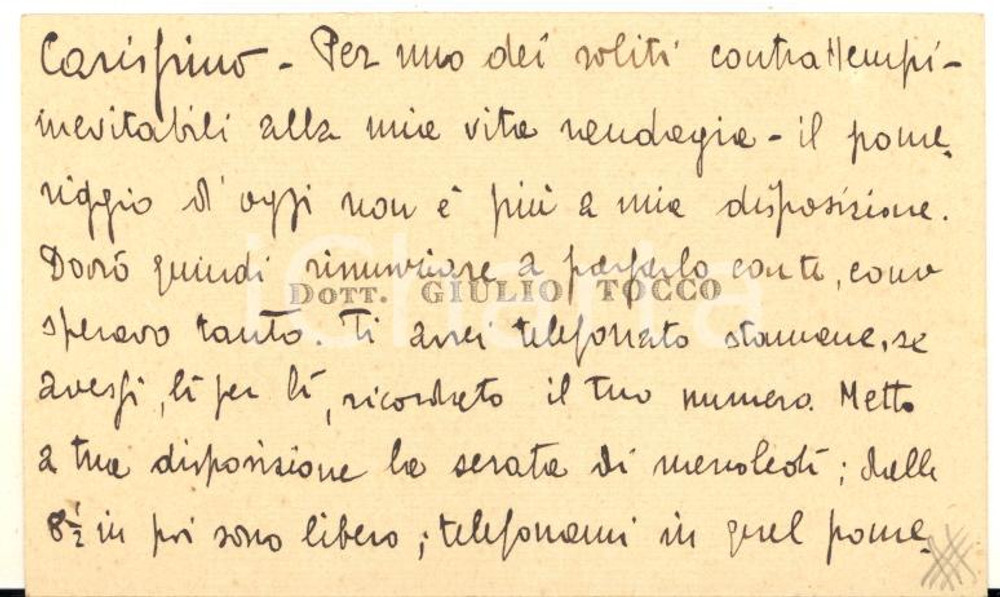 Carissimo - Per uno dei soliti contrattempi -
inevitabili alla mia vita randagia - il pome-
riggio d'oggi non è più a mia disposizione.
Dovrò quindi rinunziare a passarlo con te, come
DOTT. GIULIO TOCCO
speravo tanto. Ti avrei telefonato stamane, se
avessi, lì per lì, ricordato il tuo numero. Metto
a tua disposizione la serata di mercoledì; dalle
8½ in poi sono libero; telefonami in quel pome-